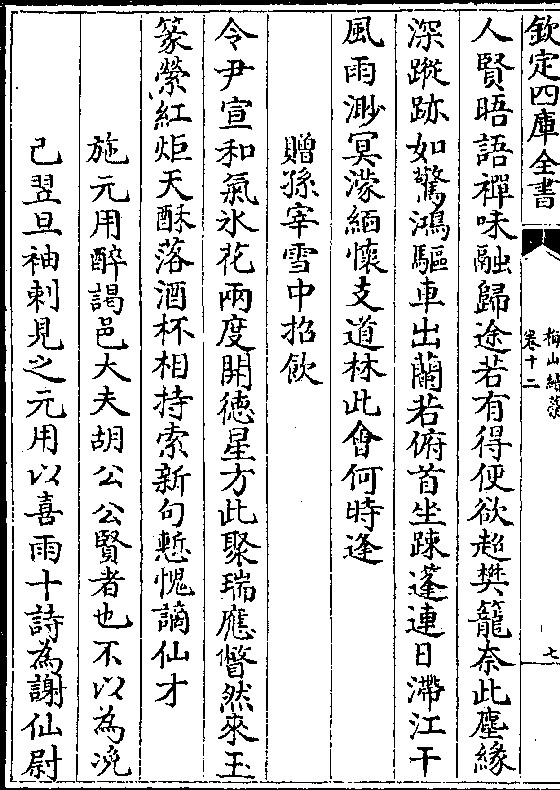 欽定四庫全書
梅山續藁
卷十二
七
人賢晤語禪味融歸途若有得便欲超樊籠奈此塵緣
深蹤跡如驚鴻驅車出蘭若俯首坐踈蓬連日滯江干
風雨渺冥濛緬懷支道林此會何時逢
贈孫宰雪中招飲
令尹宣和氣氷花兩度開德星方此聚瑞應瞥然來玉
篆縈紅炬天酥落酒杯相持索新句慙愧謫仙才
施元用醉謁邑大夫胡公公賢者也不以為浼
己翌旦袖刺見之元用以喜雨十詩為謝仙尉